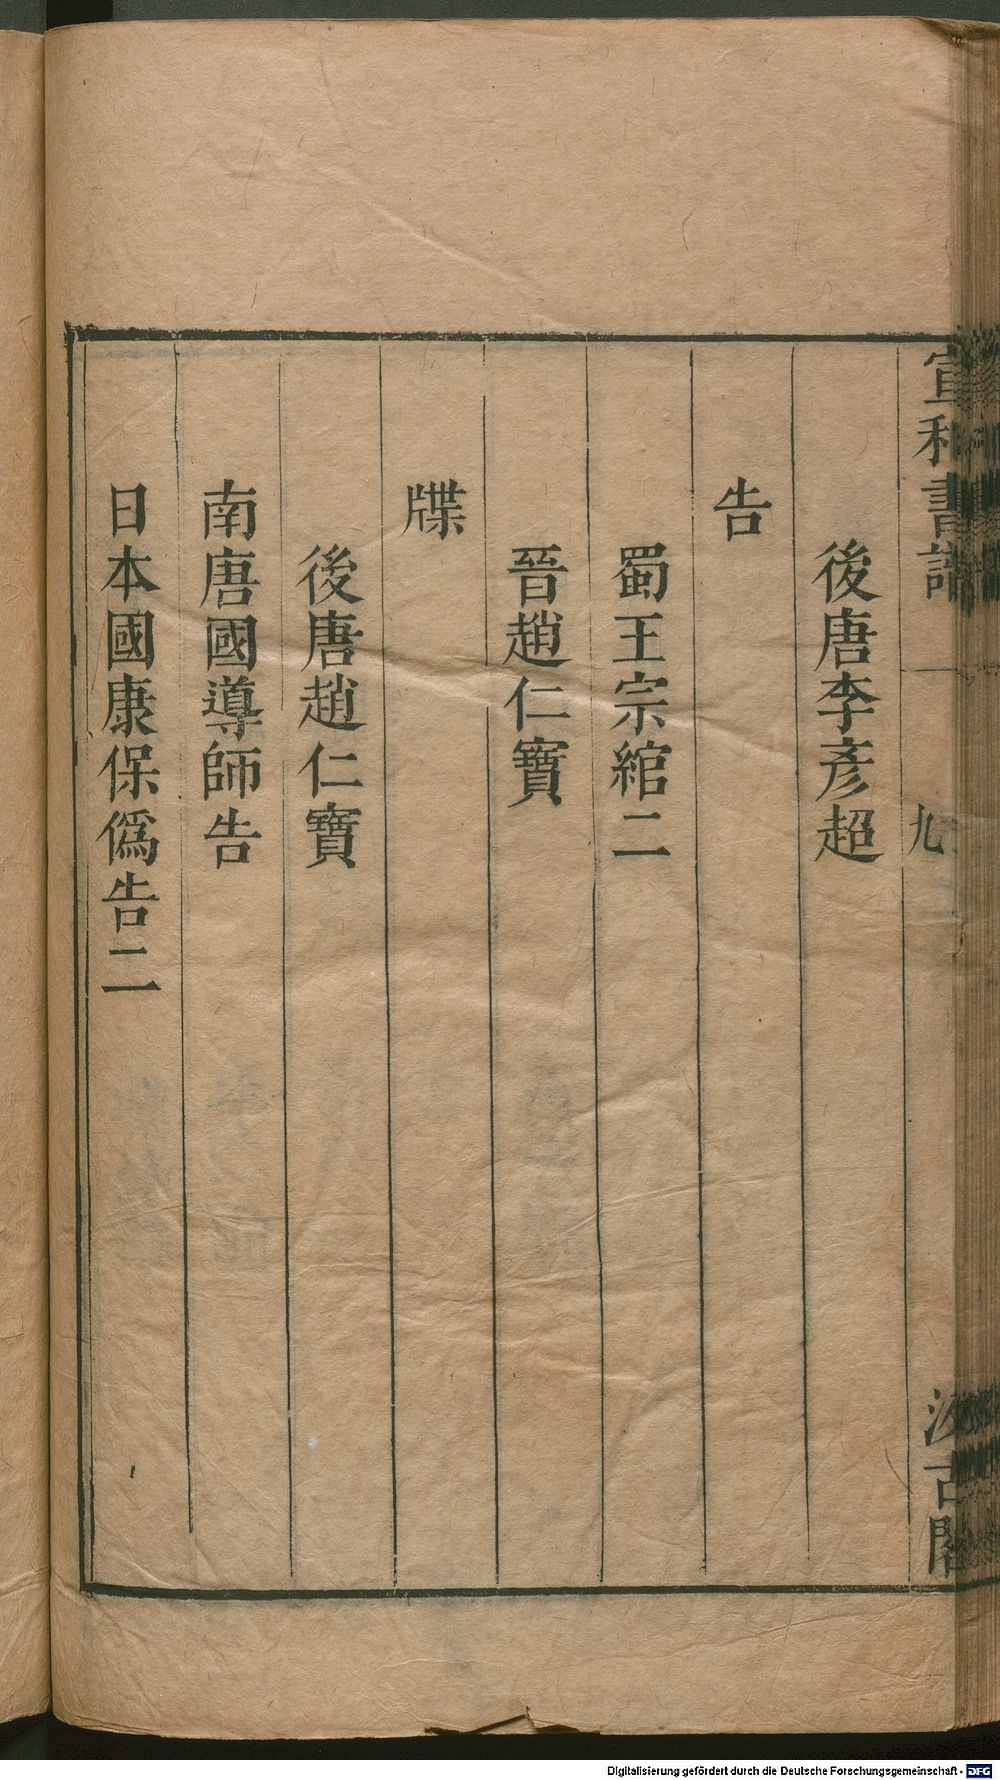 宣和書譜
九
汲古閣
後唐李彥超
告
蜀王宗綰二
晉趙仁寶
牒
後唐趙仁寶
南唐國導師告
日本國康保僞告二
Digitalisierung gefördert durch die Deutsche Forschungsgemeinschaft - DFG